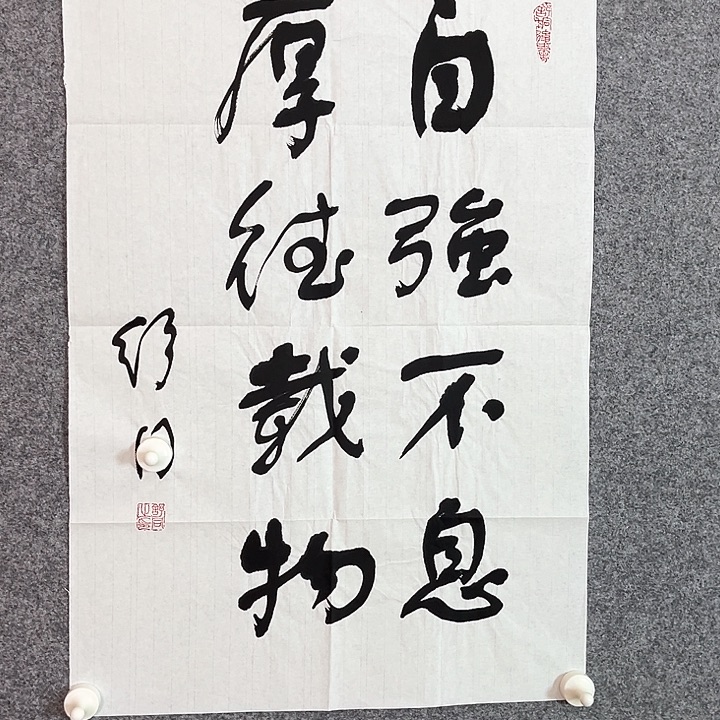 自強不息
厚德載物
舒同